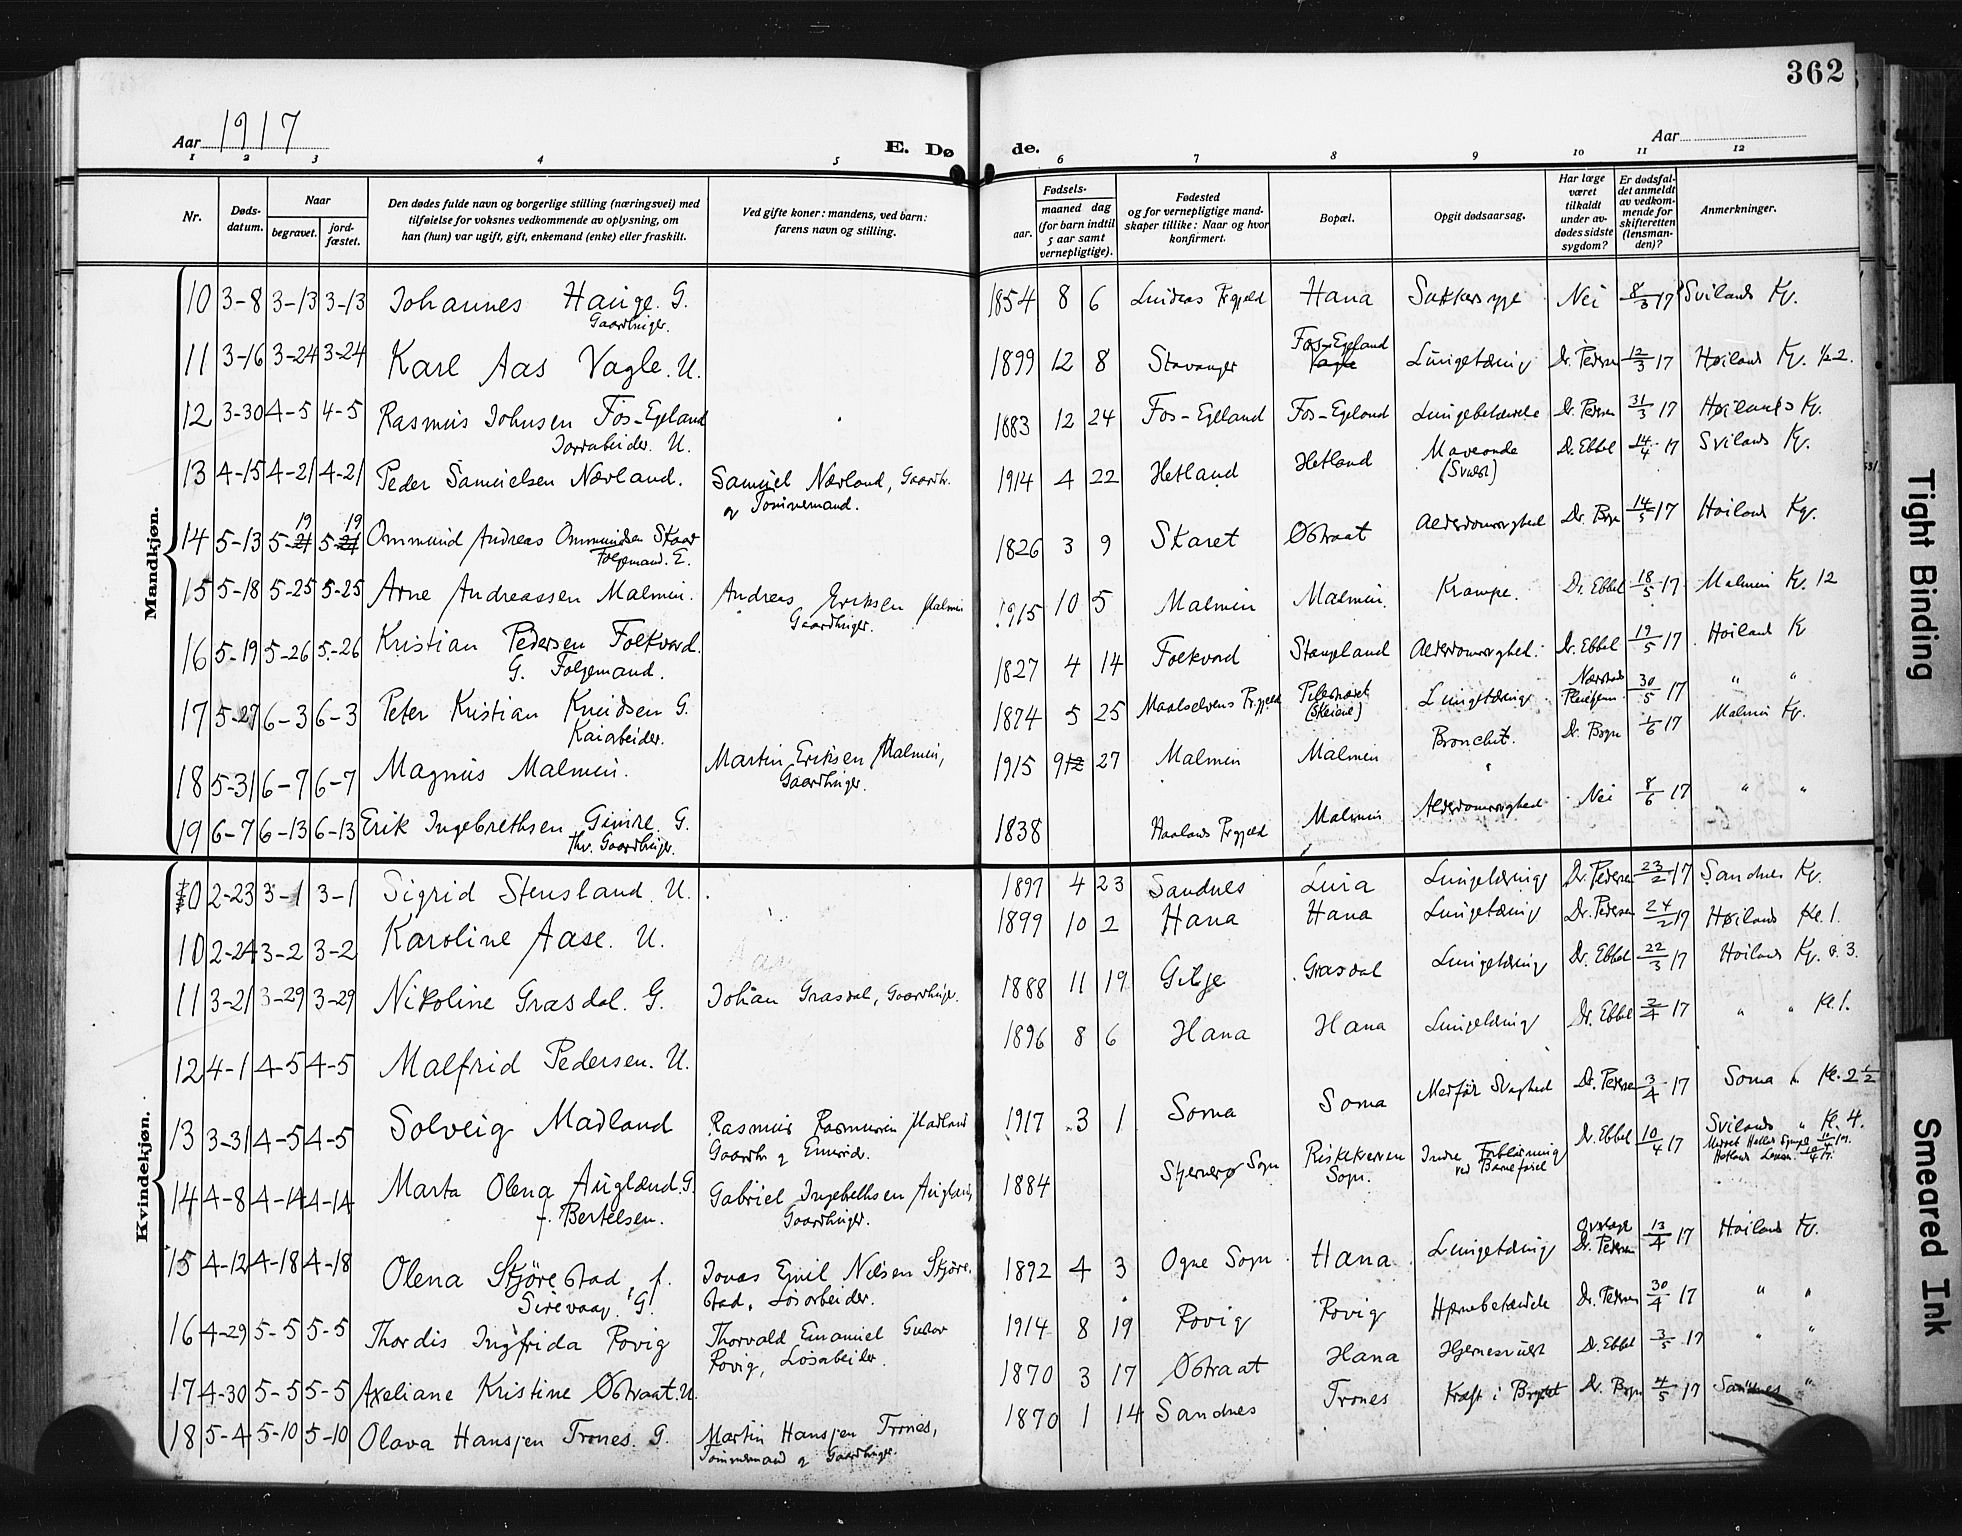 362
Aar 1917
E. Dø
de.
Aar
1 2 3 4 5 6 7 8 9 10 11 12
Nr.
Døds-
datum.
Naar
begravet.
jord-
fæstet.
Den dødes fulde navn og borgerlige stilling (næringsvei) med
tilføielse for voksnes vedkommende av oplysning, om
han (hun) var ugift, gift, enkemand (enke) eller fraskilt.
Ved gifte koner: mandens, ved barn:
farens navn og stilling.
Fødsels-
aar.
maaned dag
(for barn indtil
5 aar samt
vernepligtige).
Fødested
og for vernepligtige mand-
skaper tillike: Naar og hvor
konfirmert.
Bopæl.
Opgit dødsaarsag.
Har læge
været
tilkaldt
under av-
dødes sidste
sygdom?
Er dødsfal-
det anmeldt
av vedkom-
mende for
skifteretten
(lensman-
den)?
Anmerkninger.
Mandkjøn.
10 3-8 3-13 3-13 Johannes Hauge. G. 1854 8 6 Hana Sukkersyge Nei 8/3 17 Svilands Kg.
Gaardbruger.
11 3-16 3-24 3-24 Karl Aas Vagle. U. 1899 12 8 Stavanger Fos-Egeland Lungetæring Dr. Pedersen 12/3 17 Høiland Kg.
12 3-30 4-5 4-5 Rasmus Johnsen Fos-Egeland 1883 12 24 Fos-Egeland Fos-Egeland Lungebetændelse Dr. Pedersen 31/3 17 Høilands Kg.
Jordarbeider. U.
13 4-15 4-21 4-21 Peder Samuelsen Nævland. Samuel Nævland, Gaardbr. 1914 4 22 Hetland Hetland Maveonde Dr. Ebbel 14/4 17 Svilands Kg.
og Tømmermand.
14 5-13 5-19 5-19 Ommund Andreas Ommundsen Skaar 1826 3 9 Skaret Østraat Alderdomssvaghed 14/5 17 Høiland Kg.
Folgemand. E.
15 5-18 5-25 5-25 Arne Andreassen Malmin. Andreas Eriksen Malmin 1915 10 5 Malmin Malmin. Krampe. Dr. Ebbel 18/5 17 Malmin Kg. 12
Gaardbruger.
16 5-19 5-26 5-26 Kristian Pedersen Folkvord. 1827 4 14 Folkvord Stangeland Alderdomssvaghed. Dr. Ebbel 19/5 17 Høiland K
G. Folgemand.
17 5-27 6-3 6-3 Peter Kristian Knudsen G. 1874 5 25 Maalselvens Prgjeld Lungetæring 30/5 17 " "
Kaiarbeider.
18 5-31 6-7 6-7 Magnus Malmin. Martin Eriksen Malmin, 1915 9 27 Malmin Malmin Bronchit. 1/6 17 Malmin Kg.
Gaardbruger.
19 6-7 6-13 6-13 Erik Ingebrethsen Gimre. G. 1838 Haalands Prgjeld Malmin Alderdomssvaghed Nei 8/6 17 " "
fhv. Gaardbruger.
Kvindekjøn.
10 2-23 3-1 3-1 Sigrid Stensland. U. 1897 4 23 Sandnes Lura Lungetæring Dr. Pedersen 23/2 17 Sandnes Kg.
10 2-24 3-2 3-2 Karoline Aase. U. 1899 10 2 Hana Hana Lungetæring Dr. Pedersen 24/2 17 Høilands Kl. 1.
11 3-21 3-29 3-29 Nikoline Grasdal. G. Johan Grasdal, Gaardbruger. 1888 11 19 Gilje Grasdal Lungetæring Dr. Ebbel 22/3 17 Høilands Kg. 3.
12 4-1 4-5 4-5 Malfrid Pedersen. U. 1896 8 6 Hana Hana Lungetæring Dr. Ebbel 2/4 17 " " Kl. 1.
13 3-31 4-5 4-5 Solveig Madland Rasmus Rasmussen Madland 1917 3 1 Soma Soma Medfør Svaghed Dr. Pedersen 3/4 17 Soma Kl. 2 1/2
14 4-8 4-14 4-14 Marta Olena Auglænd. G. Gabriel Ingebrethsen Auglænd, 1884 Sjernerø Sogn Riskekverven Indre Forblødning Dr. Ebbel 10/4 17 Svilands " Kl. 4.
f. Bertelsen. Gaardbruger. Sogn. ved Barnefødsel
15 4-12 4-18 4-18 Olena Skjørestad, f. Jonas Emil Nilsen Skjøre- 1892 4 3 Ogne Sogn Hana Lungetæring Dr. Pedersen 13/4 17 Høiland Kg.
Sirevaag. G. stad. Løsarbeider.
16 4-29 5-5 5-5 Thordis Ingfrida Rovig Thorvald Emanuel Gustav 1914 8 19 Rovig Rovig Hjernebetændelse Dr. Pedersen 30/4 17 " "
Rovig, Løsarbeider.
17 4-30 5-5 5-5 Axeliane Kristine Østraat. U. 1870 3 17 Østraat Hana Hjernesvulst Dr. Ebbel 3/5 17 " "
18 5-4 5-10 5-10 Olava Hansjen Trones. G. Martin Hansjen Trones, 1870 1 14 Sandnes Trones Kræft i Brystet 4/5 17 Sandnes "
Tømmermand og Gaardbruger.
Tight Binding
Smeared Ink